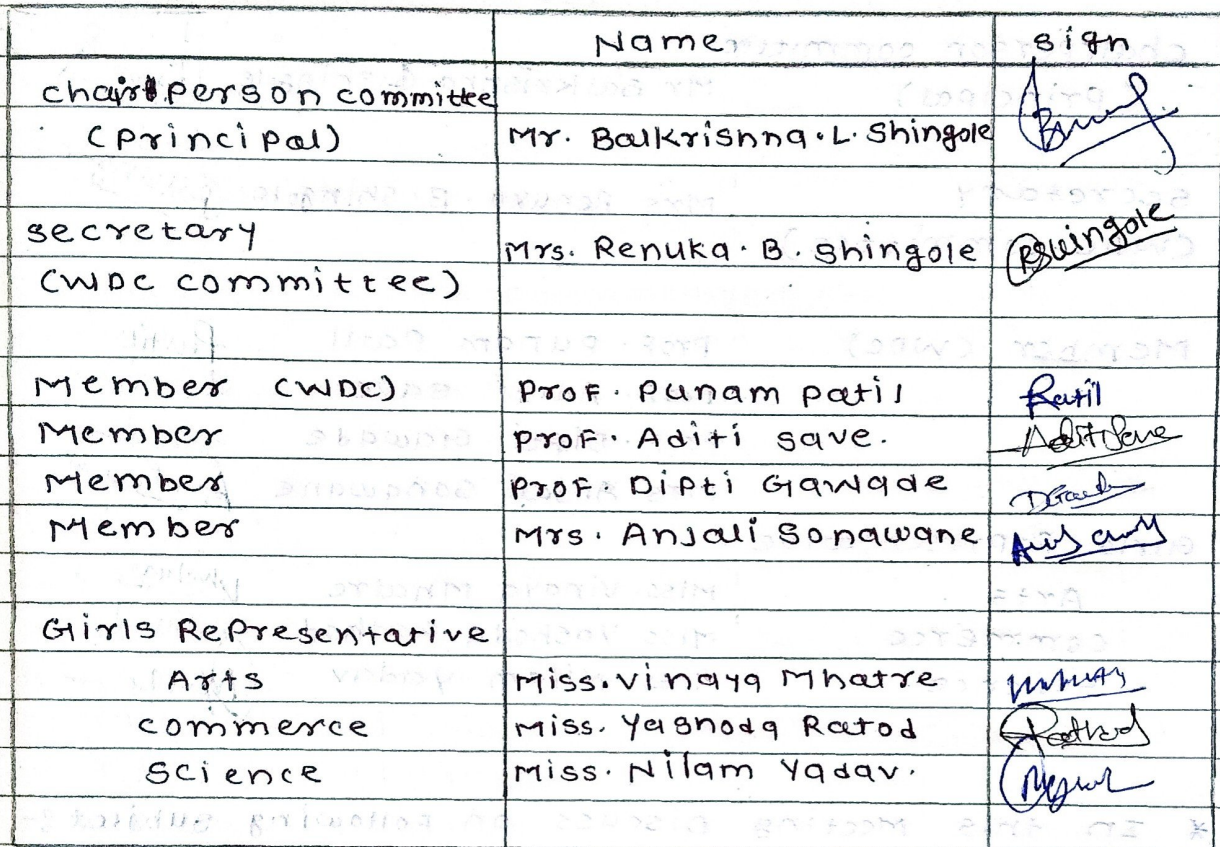 Name sign
chairperson committee
(principal) Mr. Balkrishna.L. Shingole
secretary Mrs. Renuka. B. Shingole RShingole
(WDC committee)
Member (WDC) Prof. Punam patil Patil
Member Prof. Aditi save. Aditi Save
Member Prof. Dipti Gawade
Member Mrs. Anjali Sonawane
Girls Representative
Arts Miss. vinaya Mhatre
commerce Miss. Yashoda Ratod Rathod
Science Miss. Nilam Yadav.